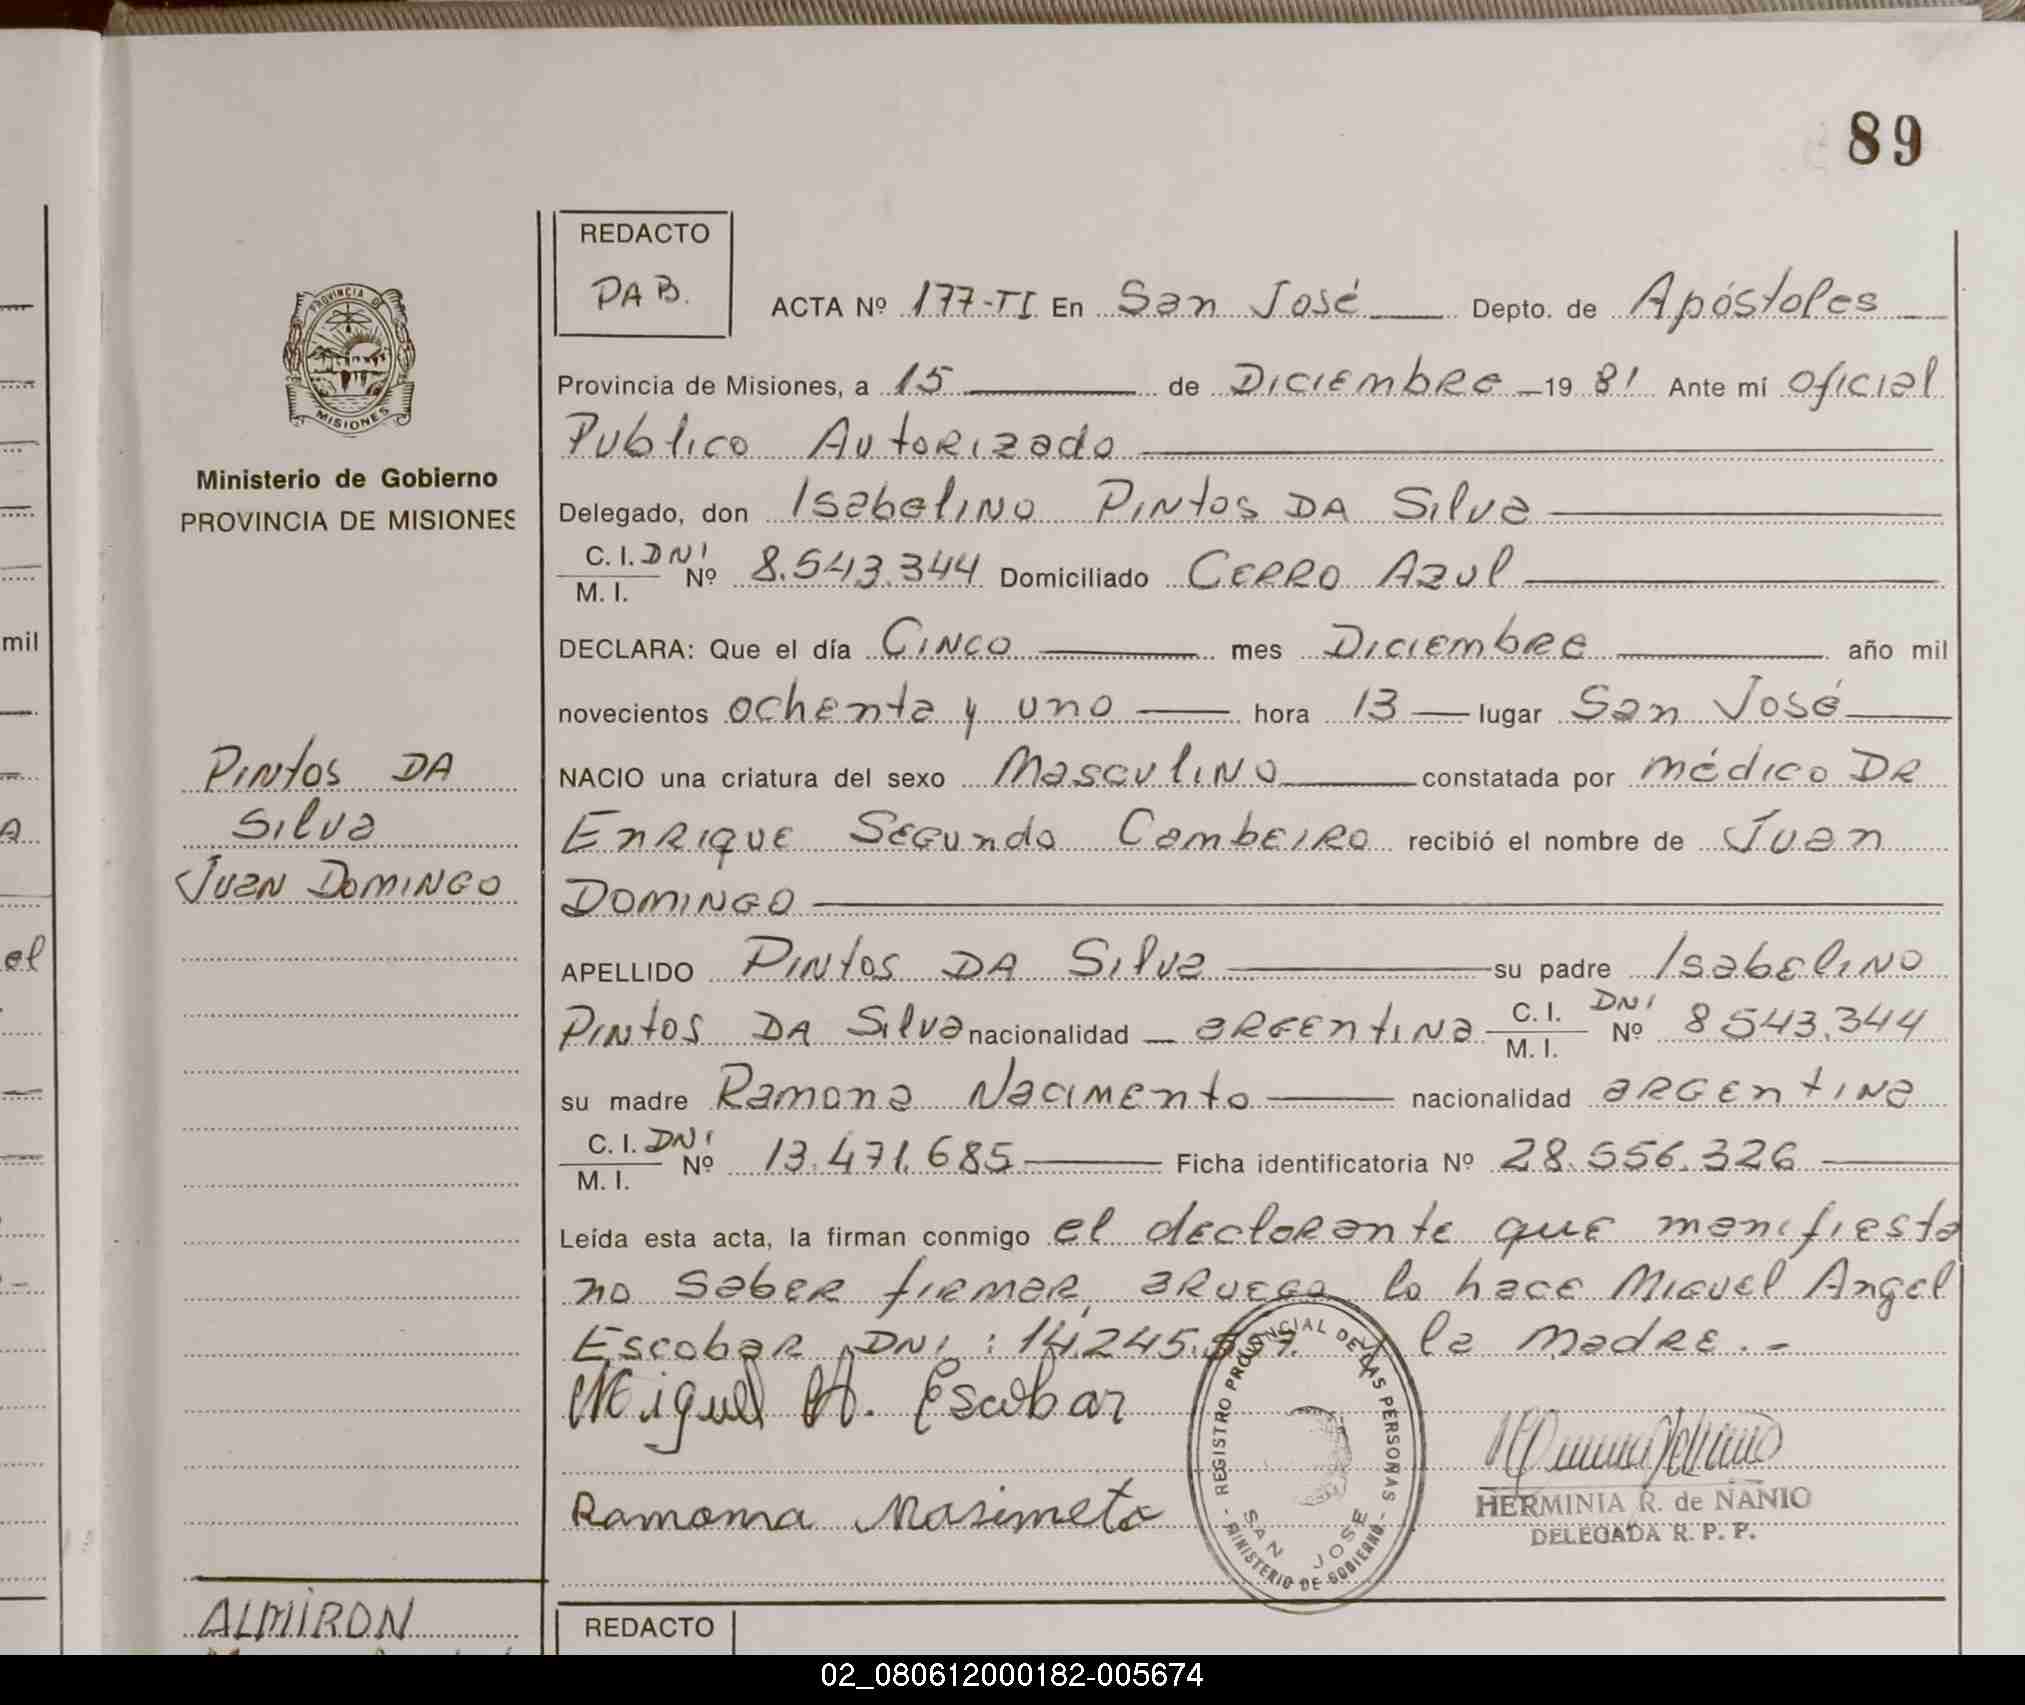 89
REDACTO
PAB.
ACTA Nº 177-TI En San José Depto. de Apóstoles
Provincia de Misiones, a 15 de Diciembre 1981 Ante mí oficial
Publico Autorizado
Delegado, don Isabelino Pintos DA Silva
C. I. DNI Nº 8.543.344 Domiciliado Cerro Azul
M. I.
DECLARA: Que el día Cinco mes Diciembre año mil
novecientos ochenta y uno hora 13 lugar San José
NACIO una criatura del sexo Masculino constatada por médico DR
Enrique Segundo Cambeiro recibió el nombre de Juan
Domingo
APELLIDO Pintos DA Silva su padre Isabelino
Pintos DA Silva nacionalidad argentina C. I. DNI Nº 8543.344
M. I.
su madre Ramona Nacimento nacionalidad argentina
C. I. DNI Nº 13.471.685 Ficha identificatoria Nº 28.556.326
M. I.
Leída esta acta, la firman conmigo el declarante que manifiesta
no saber firmar, aruego lo hace Miguel Angel
Escobar DNI: 14.245. y la madre.-
Miguel A. Escobar
Ramoma Nasimeto
REGISTRO PROVINCIAL DE LAS PERSONAS
SAN JOSE
- MINISTERIO DE GOBIERNO -
HERMINIA R. de NANIO
DELEGADA R. P. P.
REDACTO
PROVINCIA DE
MISIONES
Ministerio de Gobierno
PROVINCIA DE MISIONES
Pintos DA
Silva
Juan Domingo
ALMIRON
mil
el
02_080612000182-005674